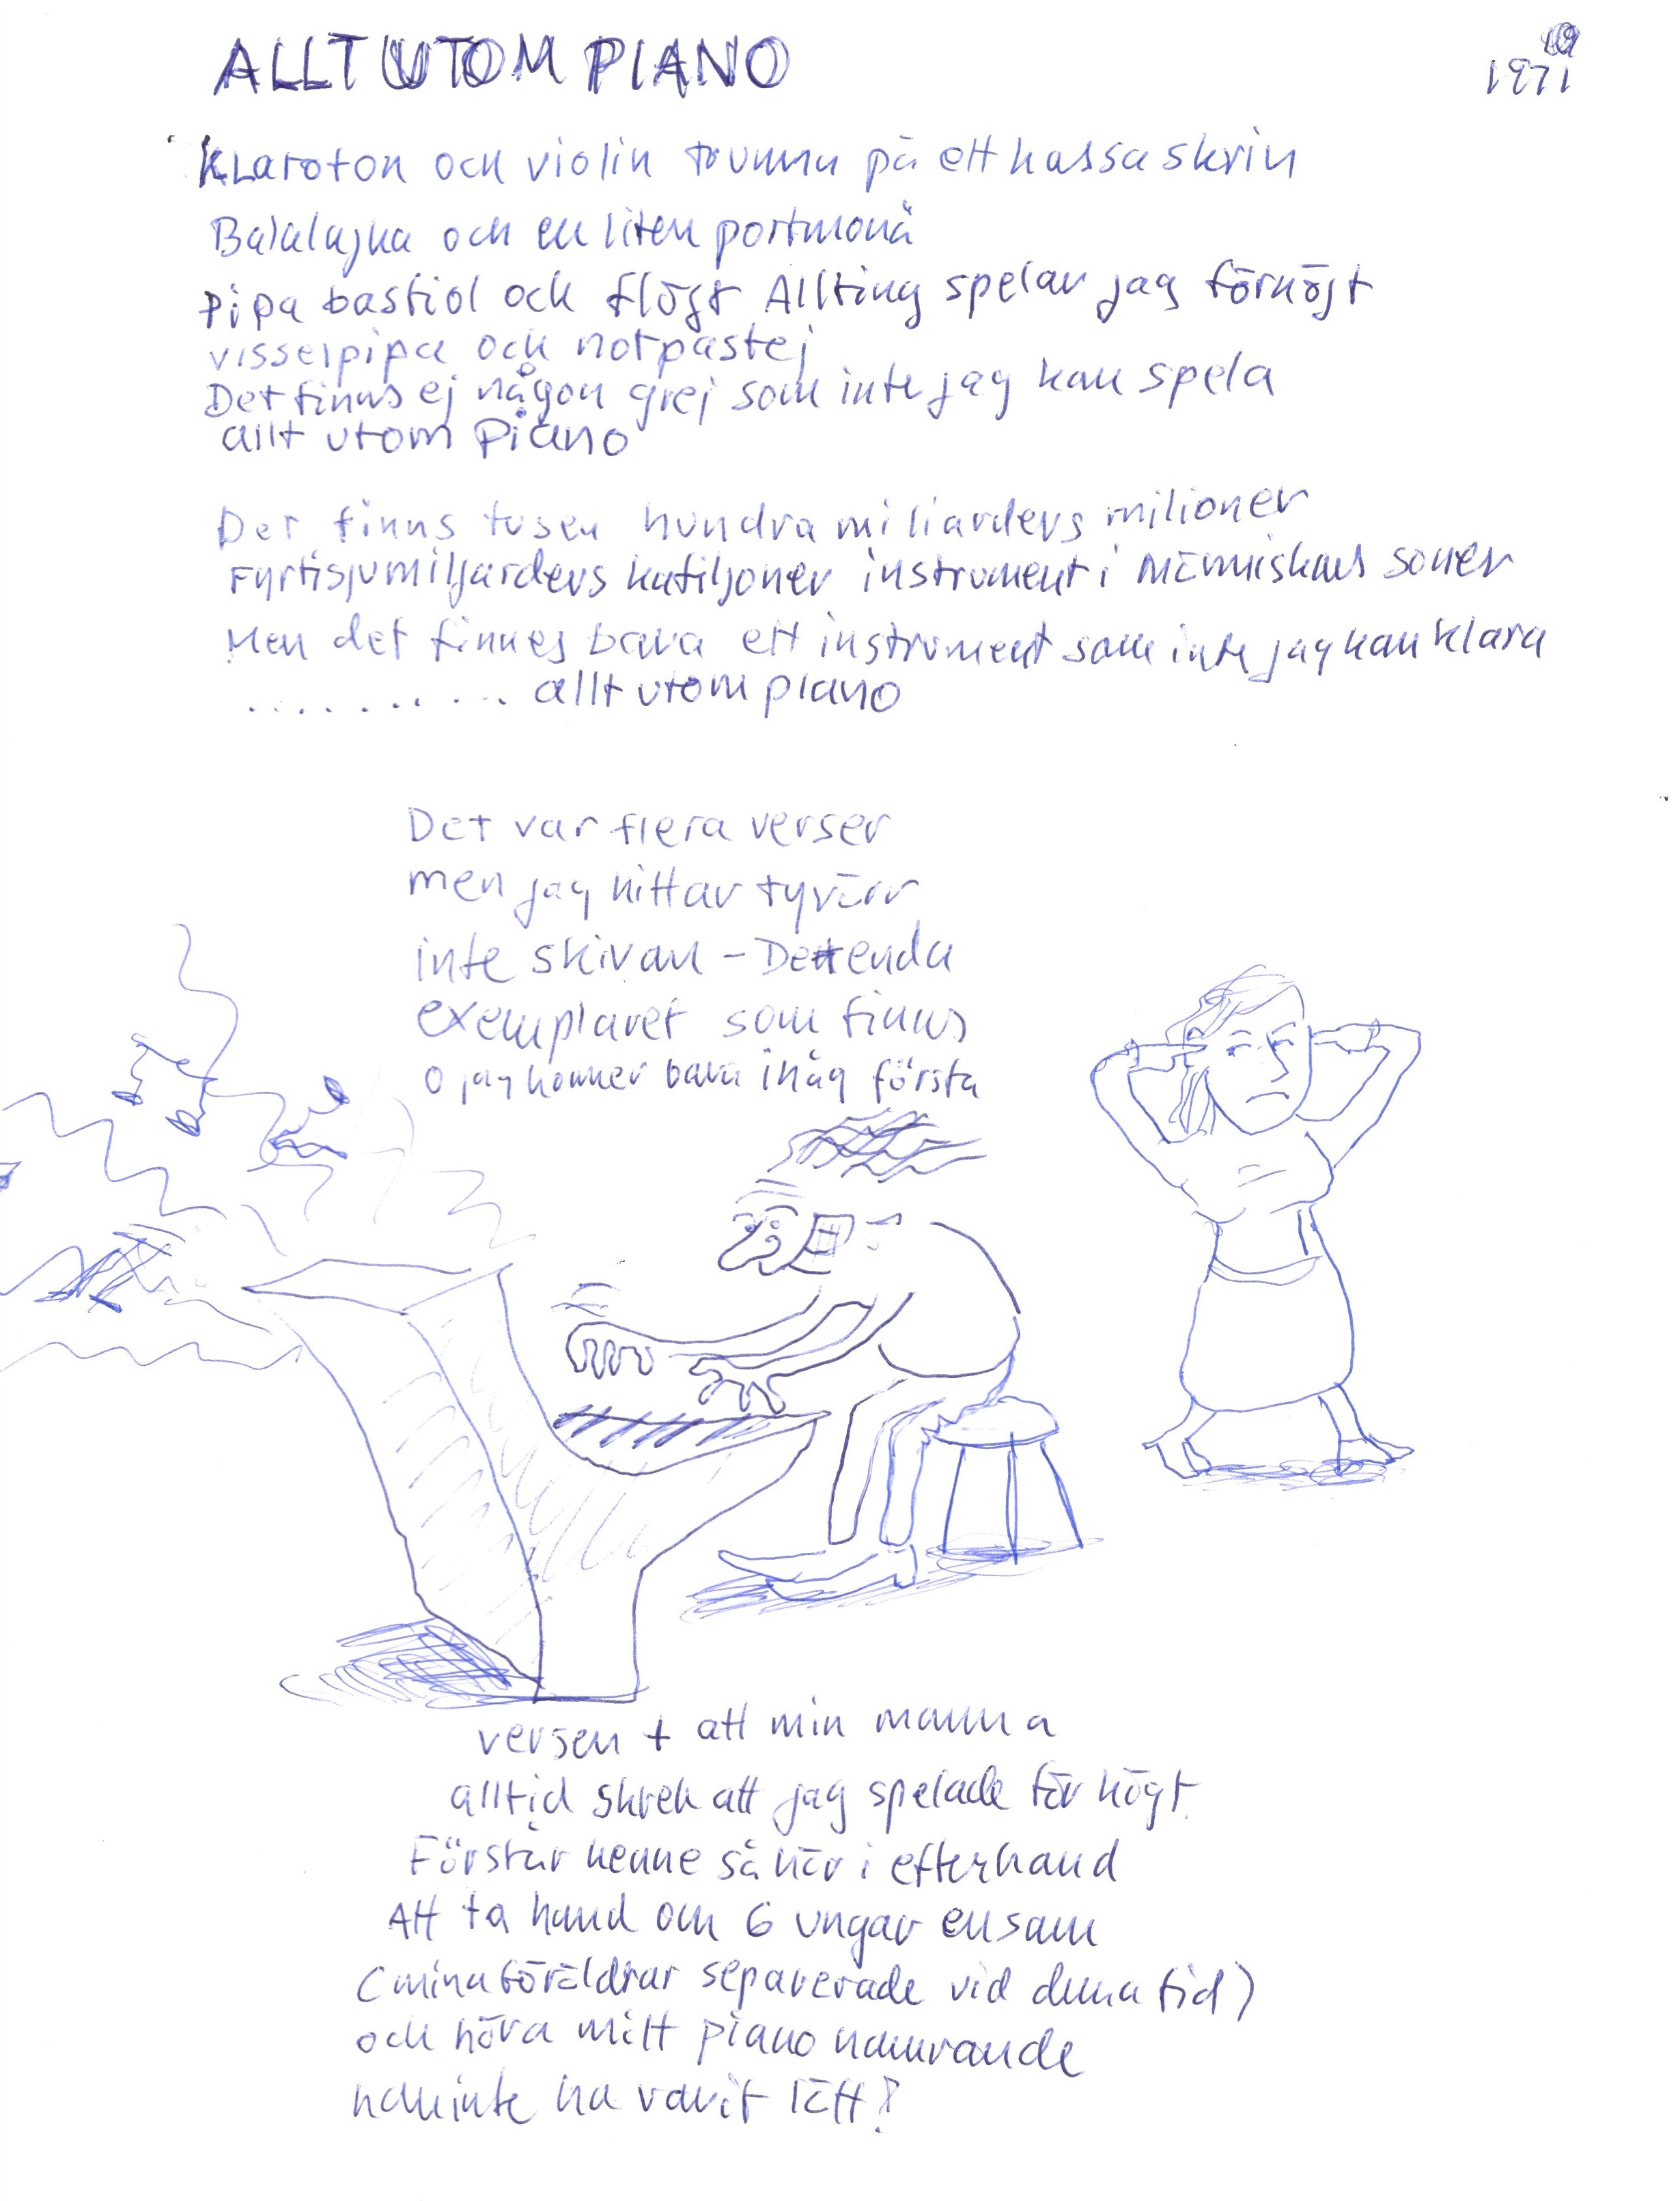 ALLT UTOM PIANO
1971
Klaroton och violin trumma på ett kassaskrin
Balalajka och en liten portmonä
Pipa bastiol och flögt Allting spelar jag förhögt
visselpipa och notpastej
Det finns ej någon grej som inte jag kan spela
allt utom Piano
Det finns tusen hundra miliarders milioner
Fyrtisjumiljarders katiljoner instrument i Människans soner
Men det finnes bara ett instrument som inte jag kan klara
.......... allt utom piano
Det var flera verser
men jag hittar tyvärr
inte skivan – Det enda
exemplaret som finns
o jag kommer bara ihåg första
versen + att min mamma
alltid skrek att jag spelade för högt
Förstår henne så här i efterhand
Att ta hand om 6 ungar ensam
(mina föräldrar separerade vid denna tid)
och höra mitt piano hamrande
kan inte ha varit lätt!